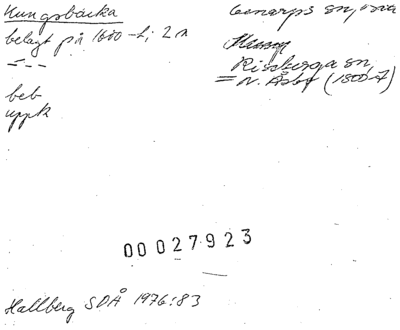 Kungsbäcka
belagt på 1600-t; 2 n
beb
uppk
Genarps sn,
Risseberga sn
= N. Åsby (1800-t)
00027923
Hallberg SDÅ 1976:83